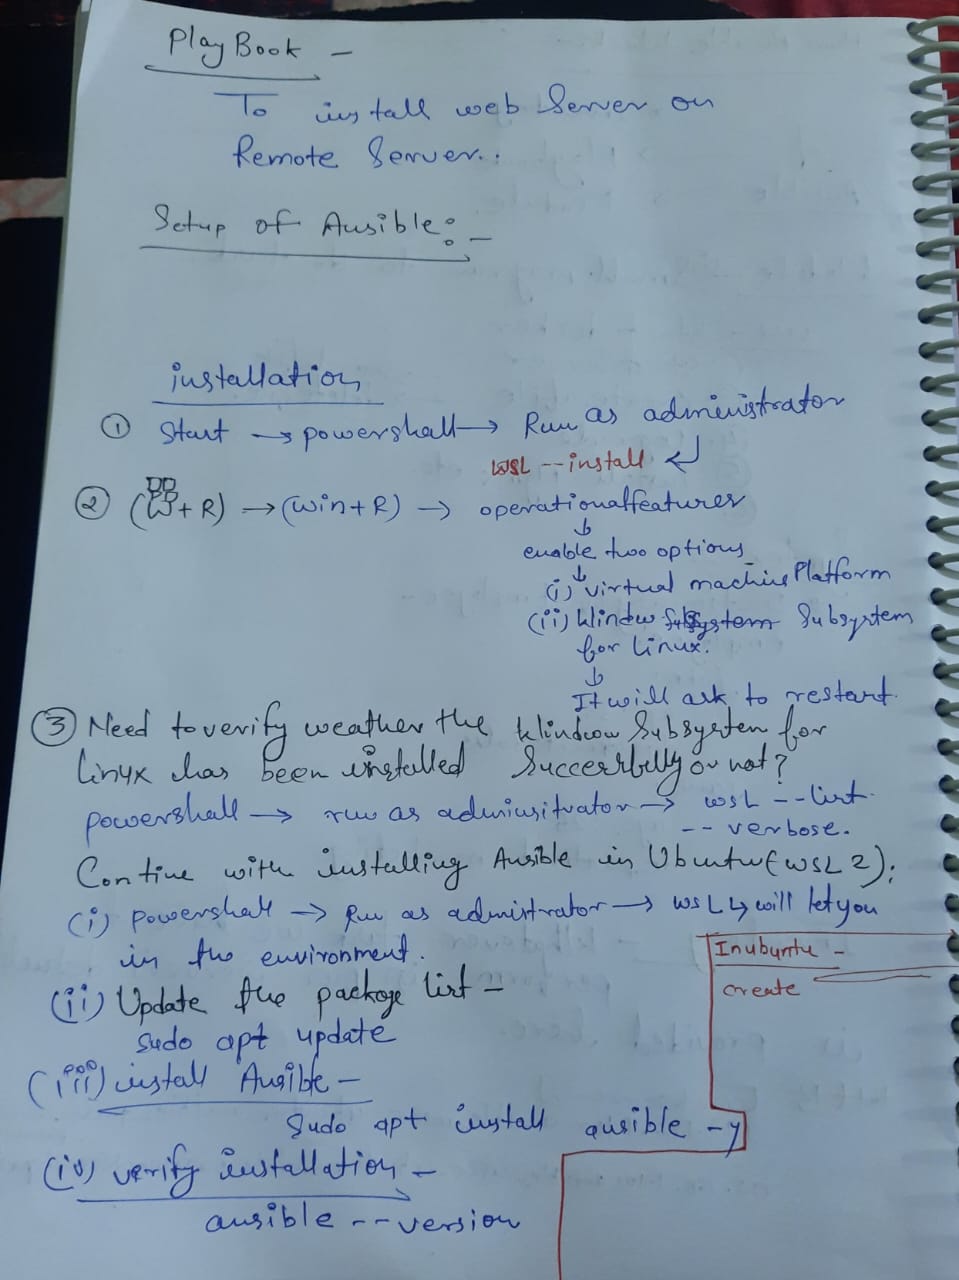 PlayBook -
To install web Server on
Remote Server..
Setup of Ansible:-
installation
① Start → powershall → Run as administrator
WSL --install ↵
② (W + R) → (win + R) → operationalfeatures
↓
enable two options
↓
(i) virtual machine Platform
(ii) Window Subsystem Subsystem
for Linux.
↓
It will ask to restart.
③ Need to verify weather the Window Subsystem for
Linux has been installed Successfully or not?
powershall → run as adminisitrator → wsL --list
-- verbose.
Contine with installing Ansible in Ubuntu (WSL 2);
(i) powershall → Run as admintrator → wsL ↳ will let you
in the environment.
Inubuntu -
create
(ii) Update the package list -
sudo apt update
(iii) install Ansible -
Sudo apt install ansible -y
(iv) verify installation -
ansible --version